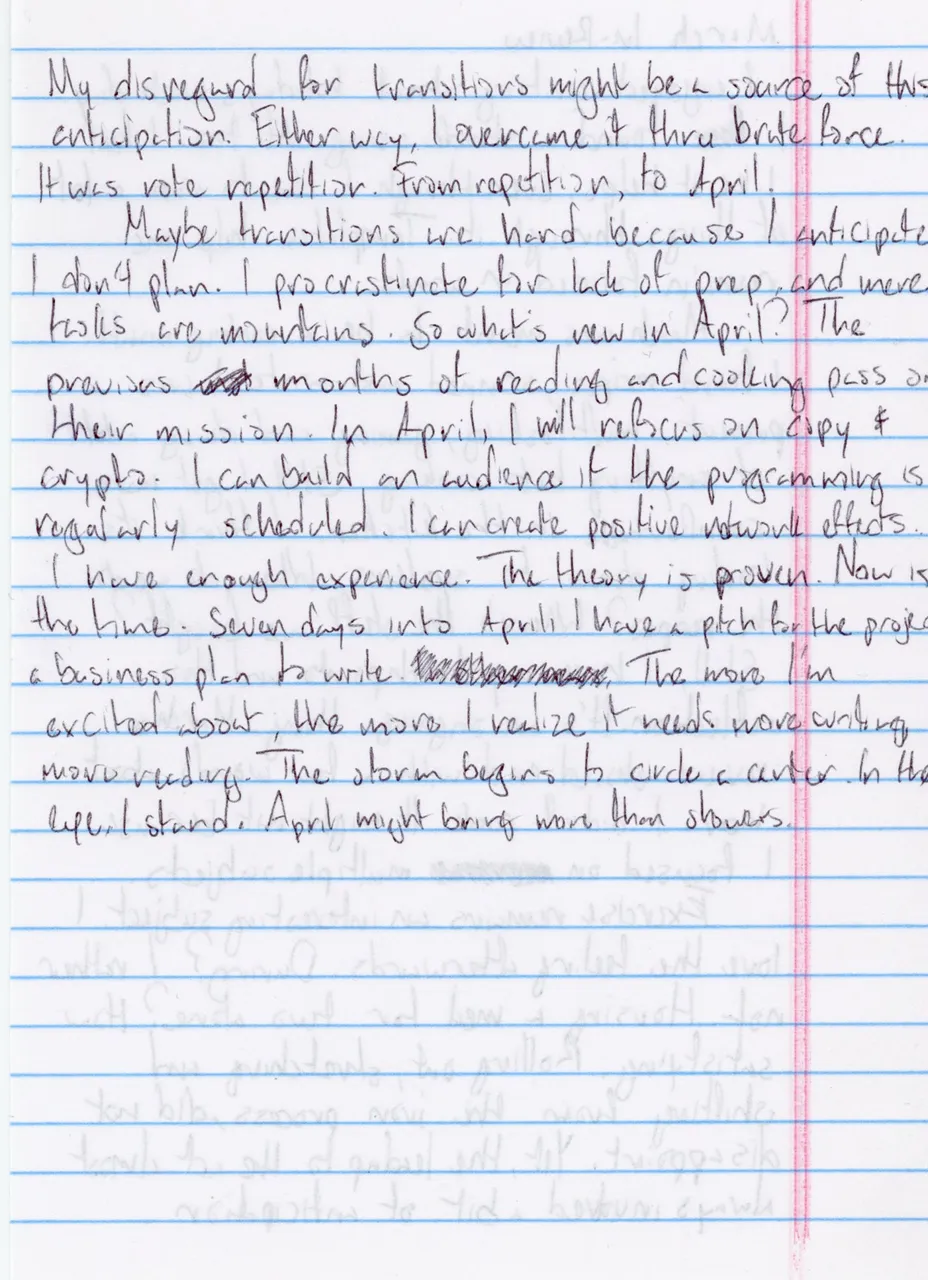 My disregard for transitions might be a source of this
anticipation. Either way, I overcame it thru brute force.
It was rote repetition. From repetition, to April.
Maybe transitions are hard because I anticipate
I don't plan. I procrastinate for lack of prep, and mere
tasks are mountains. So what's new in April? The
previous months of reading and cooking pass on
their mission. In April, I will refocus on copy &
crypto. I can build an audience if the programming is
regularly scheduled. I can create positive network effects.
I have enough experience. The theory is proven. Now is
the time. Seven days into April I have a pitch for the projec
a business plan to write. The more I'm
excited about, the more I realize it needs more writing,
more reading. The storm begins to circle a center. In the
eye, I stand. April might bring more than showers.